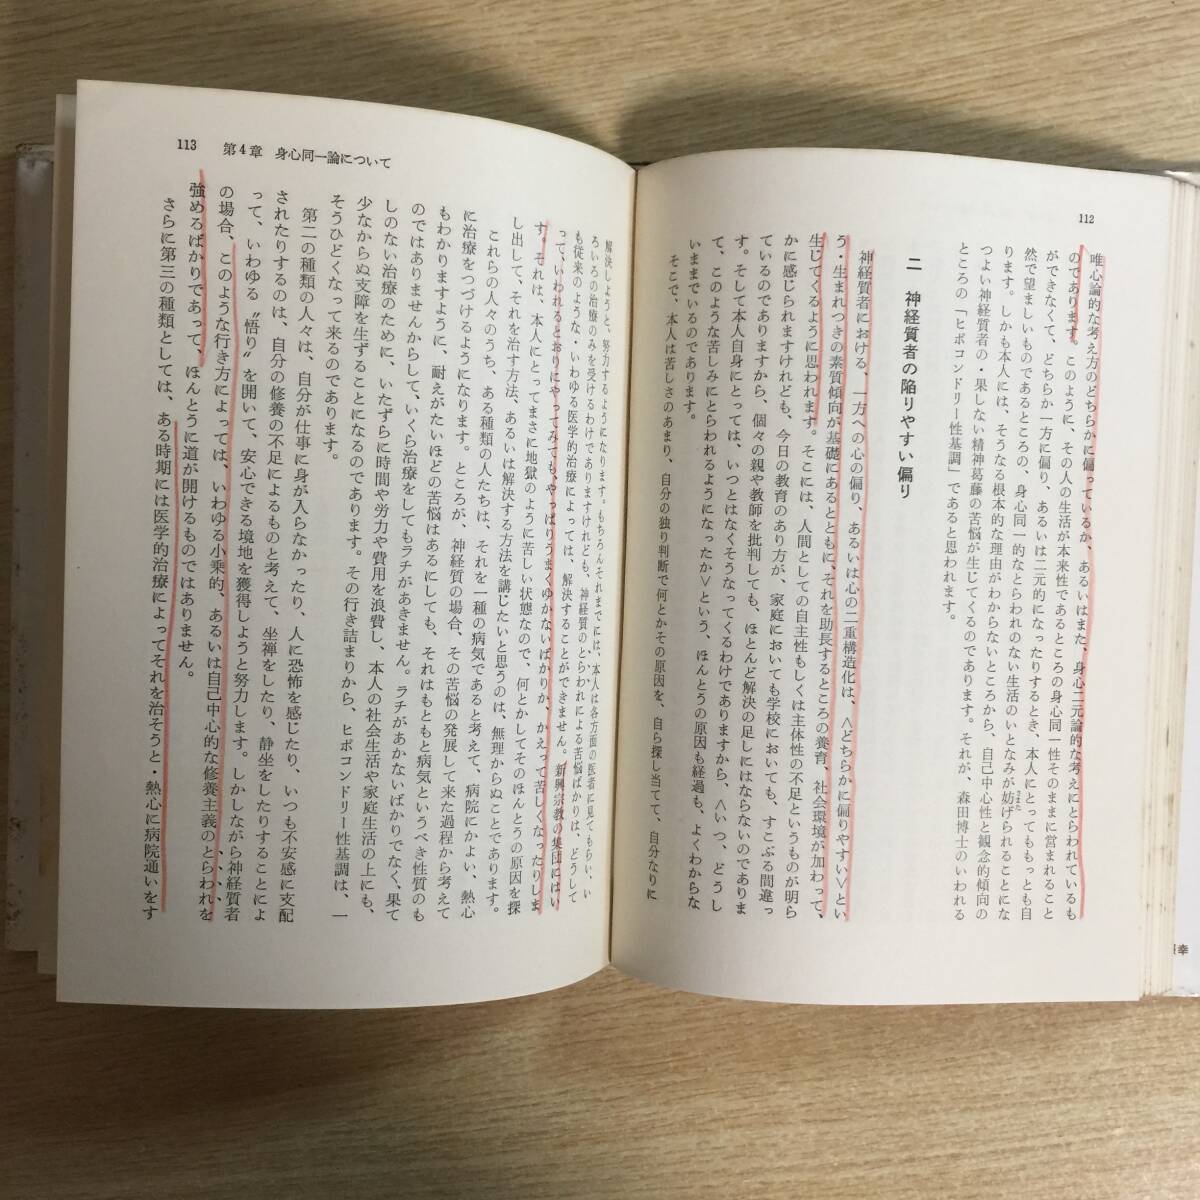 112
唯心論的な考え方のどちらかに偏っているか、あるいはまた、身心二元論的な考えにとらわれているも
のであります。このように、その人の生活が本来性であるところの身心同一性そのままに営まれること
ができなくて、どちらか一方に偏り、あるいは二元的になったりするとき、本人にとってももっとも自
然で望ましいものであるところの、身心同一的なとらわれのない生活のいとなみが妨げられることにな
ります。しかも本人には、そうなる根本的な理由がわからないところから、自己中心性と観念的傾向の
つよい神経質者の・果しない精神葛藤の苦悩が生じてくるのであります。それが、森田博士のいわれる
ところの「ヒポコンドリー性基調」であると思われます。
二 神経質者の陥りやすい偏り
神経質者における、一方への心の偏り、あるいは心の二重構造化は、〈どちらかに偏りやすい〉とい
う・生まれつきの素質傾向が基礎にあるとともに、それを助長するところの養育、社会環境が加わって、
生じてくるように思われます。そこには、人間としての自主性もしくは主体性の不足というものが明ら
かに感じられますけれども、今日の教育のあり方が、家庭においても学校においても、すこぶる間違っ
ているのでありますから、個々の親や教師を批判しても、ほとんど解決の足しにはならないのでありま
す。そして本人自身にとっては、いつとはなくそうなってくるわけでありますから、〈いつ、どうし
て、このような苦しみにとらわれるようになったか〉という、ほんとうの原因も経過も、よくわからな
いままでいるのであります。
そこで、本人は苦しさのあまり、自分の独り判断で何とかその原因を、自ら探し当てて、自分なりに
113 第4章 身心同一論について
解決しようと、努力するようになります。もちろんそれまでには、本人は各方面の医者に見てもらい、い
ろいろの治療のみを受けるわけでありますけれども、神経質のとらわれによる苦悩ばかりは、どうして
も従来のような・いわゆる医学的治療によっては、解決することができません。新興宗教の集団にはい
って、いわれるとおりにやってみても、やっぱりうまくゆかないばかりか、かえって苦しくなったりしま
す。それは、本人にとってまさに地獄のように苦しい状態なので、何とかしてそのほんとうの原因を探
し出して、それを治す方法、あるいは解決する方法を講じたいと思うのは、無理からぬことであります。
これらの人々のうち、ある種類の人たちは、それを一種の病気であると考えて、病院にかよい、熱心
に治療をつづけるようになります。ところが、神経質の場合、その苦悩の発展して来た過程から考えて
もわかりますように、耐えがたいほどの苦悩はあるにしても、それはもともと病気というべき性質のも
のではありませんからして、いくら治療をしてもラチがあきません。ラチがあかないばかりでなく、果て
しのない治療のために、いたずらに時間や労力や費用を浪費し、本人の社会生活や家庭生活の上にも、
少なからぬ支障を生ずることになるのであります。その行き詰まりから、ヒポコンドリー性基調は、一
そうひどくなって来るのであります。
第二の種類の人々は、自分が仕事に身が入らなかったり、人に恐怖を感じたり、いつも不安感に支配
されたりするのは、自分の修養の不足によるものと考えて、坐禅をしたり、静坐をしたりすることによ
って、いわゆる〝悟り〟を開いて、安心できる境地を獲得しようと努力します。しかしながら神経質者
の場合、このような行き方によっては、いわゆる小乗的、あるいは自己中心的な修養主義のとらわれを
強めるばかりであって、ほんとうに道が開けるものではありません。
さらに第三の種類としては、ある時期には医学的治療によってそれを治そうと・熱心に病院通いをす